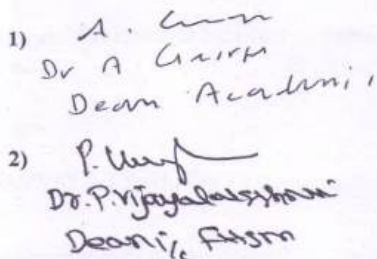 1) A.
Dr A
Dean Academi
2) P.
Dr. P. Vijayalakshmi
Dean i/c FHSM